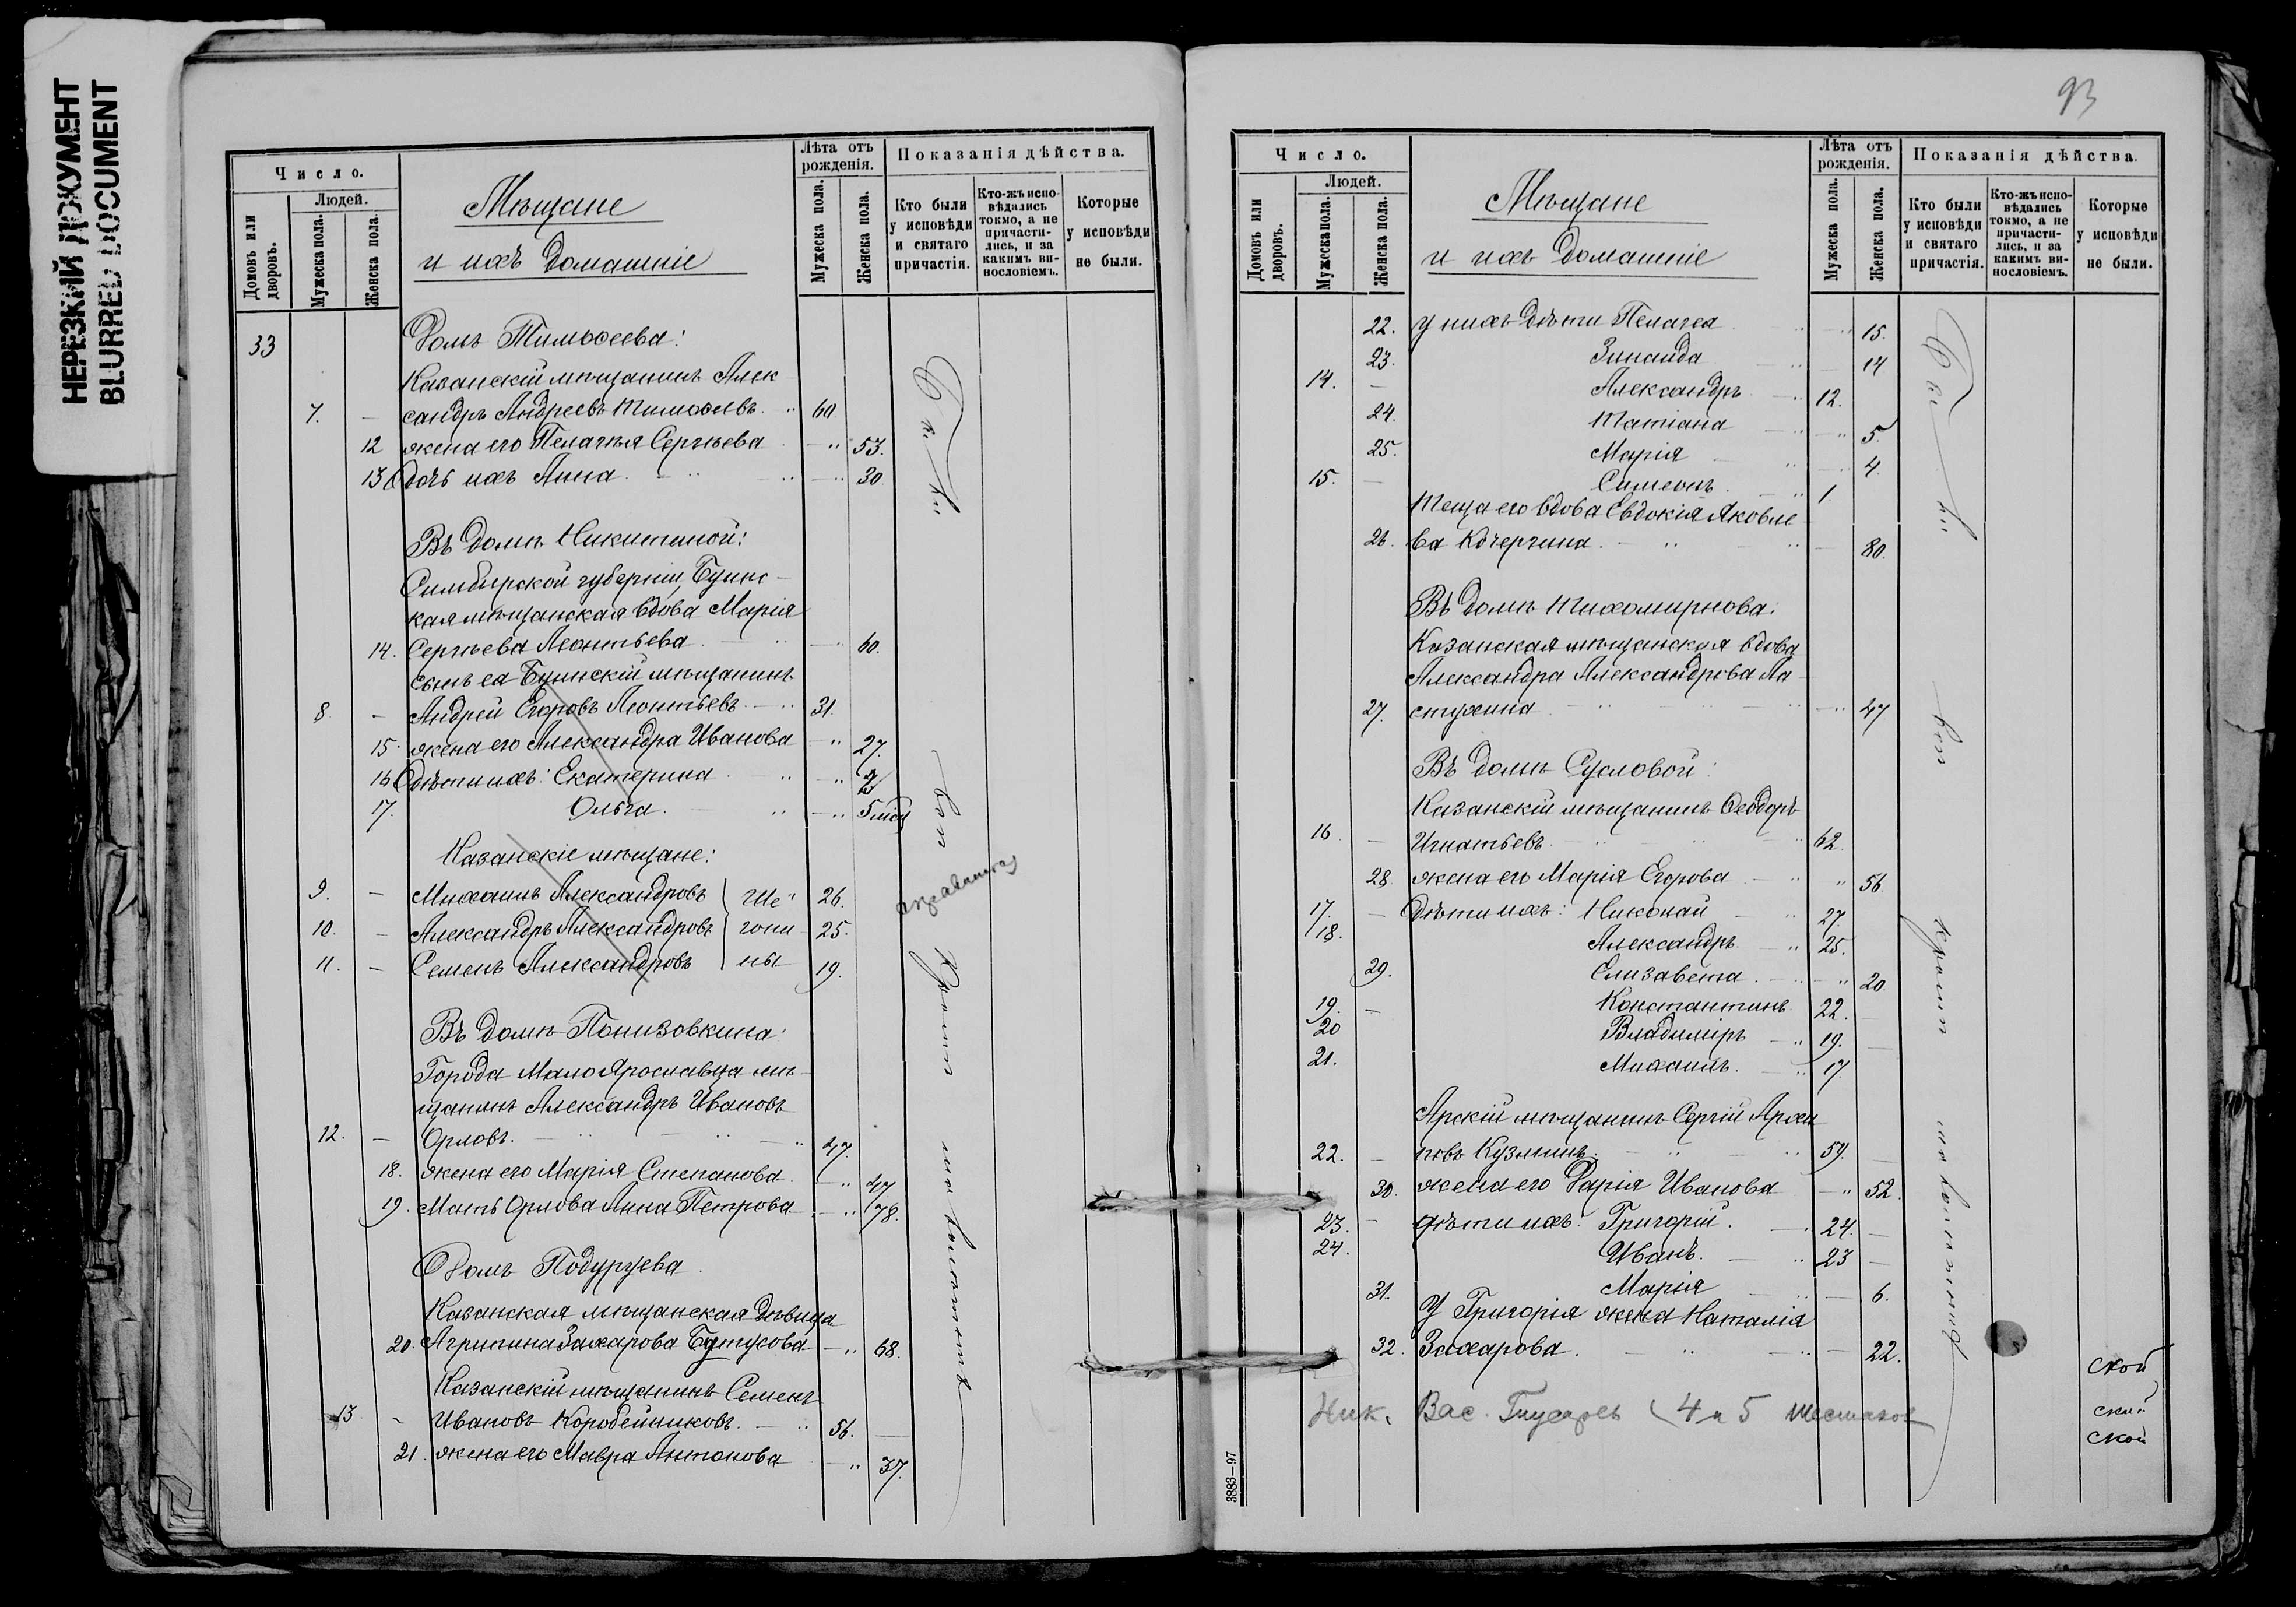 НЕРЕЗКИЙ ДОКУМЕНТ
BLURRED DOCUMENT
Число.
Людей.
Домовъ или дворовъ.
Мужеска пола.
Женска пола.
Мѣщане
и ихъ домашніе
Лѣта отъ рожденія.
Мужеска пола.
Женска пола.
Показанія дѣйства.
Кто были у исповѣди и святаго причастія.
Кто-жъ испо-вѣдались токмо, а не причасти-лись, и за какимъ ви-нословіемъ.
Которые у исповѣди не были.
33 Домъ Тимоѳеева:
Казанскій мѣщанинъ Алек
7. – сандръ Андреевъ Тимоѳеевъ 60.
12 жена его Пелагея Сергѣева 53.
13 дочь ихъ Анна 30
Въ домѣ Никитиной:
Симбирской губерніи, Буинс-
кая мѣщанская вдова Марія
14. Сергѣева Леонтьева 60.
сынъ ея Буинскій мѣщанинъ
8. – Андрей Егоровъ Леонтьевъ 31.
15. жена его Александра Иванова 27.
16 дѣти ихъ: Екатерина
17. Ольга 5 мѣс
Казанскіе мѣщане:
9. – Михаилъ Александровъ Ще- 26.
10. – Александръ Александровъ голи 25.
11. – Семенъ Александровъ ны 19.
Въ домѣ Понизовкина:
Города МалоЯрославца мѣ-
щанинъ Александръ Ивановъ
12. – Орловъ 47.
18. жена его Марія Степанова 47
19. Мать Орлова Анна Петрова 78.
Домъ Подуруева.
Казанская мѣщанская дѣвица
20. Агрипина Захарова Бутусова 68.
Казанскій мѣщанинъ Семенъ
13 – Ивановъ Коробейниковъ 56.
21. жена его Мавра Антонова 37.
Оз на
вси
кромѣ
малолѣтнихъ
93
Число.
Людей.
Домовъ или дворовъ.
Мужеска пола.
Женска пола.
Мѣщане
и ихъ домашніе
Лѣта отъ рожденія.
Мужеска пола.
Женска пола.
Показанія дѣйства.
Кто были у исповѣди и святаго причастія.
Кто-жъ испо-вѣдались токмо, а не причасти-лись, и за какимъ ви-нословіемъ.
Которые у исповѣди не были.
22. у нихъ дѣти Пелагея 15.
23. Зинаида 14
14. – Александръ 12.
24. Татіана 5.
25. Марія 4.
15. – Симеонъ 1
Теща его вдова Евдокія Яковле
26. ва Кочергина 80.
Въ домѣ Тихомирнова:
Казанская мѣщанская вдова
Александра Александрова Ла
27. стухина 47
Въ домѣ Сусловой:
Казанскій мѣщанинъ Ѳеодоръ
16. – Игнатьевъ 62.
28. жена его Марія Егорова 56.
17. – Дѣти ихъ: Николай 27.
18. Александръ 25.
29. Елизавета 20.
19. – Константинъ 22.
20 Владиміръ 19.
21. Михаилъ 17.
Арскій мѣщанинъ Сергій Архи
22. – повъ Кузминъ 59.
30. жена его Дарія Иванова 52.
23. – дѣти ихъ: Григорій 24.
24. Иванъ 23
31. Марія 6.
У Григорія жена Наталія
32. Захарова 22.
Ник. Вас. 4 и 5
вси
кромѣ
малолѣтнихъ
ской
ской
ской
3883–97